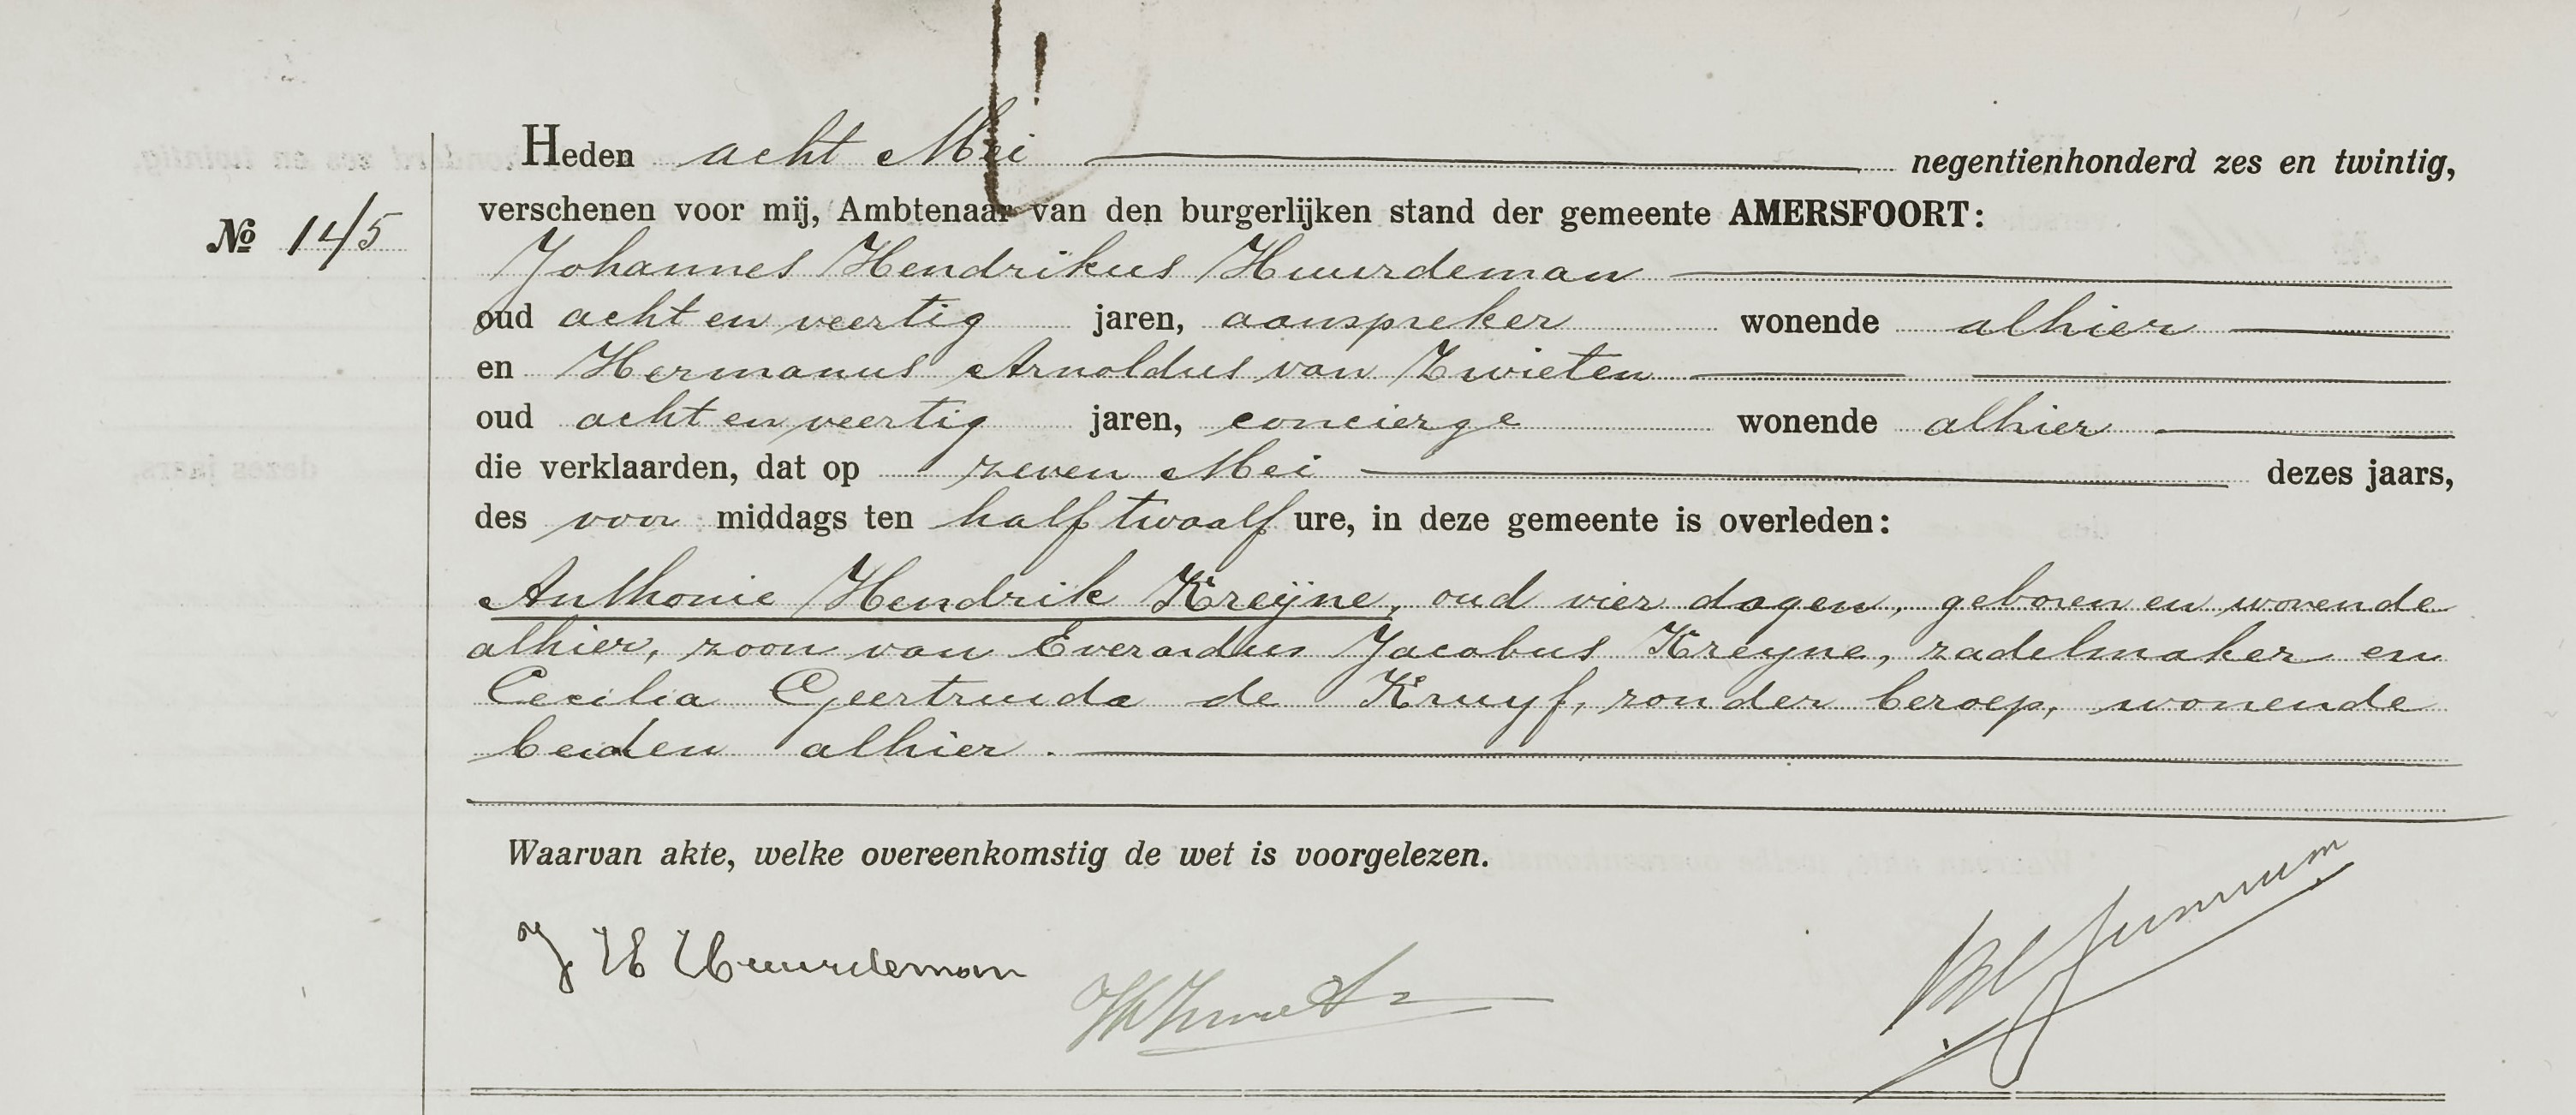 Heden acht Mei negentienhonderd zes en twintig,
verschenen voor mij, Ambtenaar van den burgerlijken stand der gemeente AMERSFOORT:
№ 145
Johannes Hendrikus Huurdeman
oud acht en veertig jaren, aanspreker wonende alhier
en Hermanus Arnoldus van Zwieten
oud acht en veertig jaren, concierge wonende alhier
die verklaarden, dat op zeven Mei dezes jaars,
des voor middags ten half twaalf ure, in deze gemeente is overleden:
Anthonie Hendrik Kreÿne, oud vier dagen, geboren en wonende
alhier, zoon van Everardus Jacobus Kreyne, zadelmaker en
Cecilia Geertruida de Kruyf, zonder beroep, wonende
beiden alhier.
Waarvan akte, welke overeenkomstig de wet is voorgelezen.
J H Huurdeman